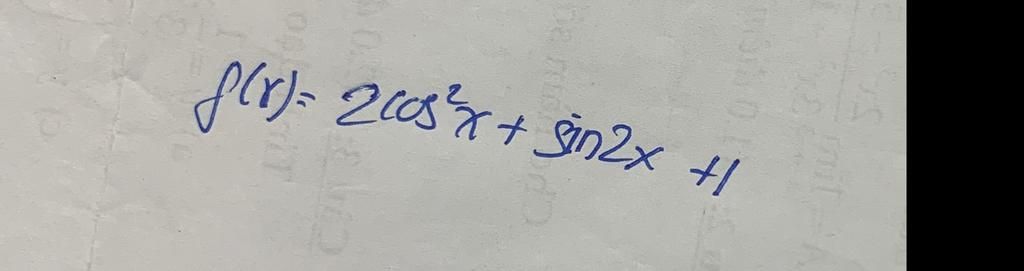 f(x)= 2cos²x + sin2x +1